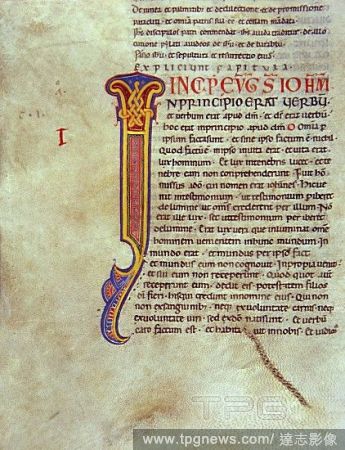 et palmitibus et dedilectione et de promissione
paracliti et omnia patris sua ee et
Ihs discipulos patri commendat ihs iuda traditur
et resurrectio eius
Expliciunt capitula
INCP EVGS IOHM
I
IN PRINCIPIO ERAT VERBU
et verbum erat apud dm et ds erat verbu
hoc erat inprincipio apud dm Omia p
ipsum factasunt et sine ipso factum e nichil
Quod factue inipso uita erat et uita erat
lux hominum Et lux intenebris lucet et te
nebre eam non conprehenderunt Fuit ho
missus ado cui nomen erat iohanes Hicue
nit intestimonium ut testimonium phiberet
de lumine ut oms crederent per illum No
erat ille lux sed uttestimonium per hiberet
delumine Erat lux vera que inluminat ome
hominem venientem inhunc mundum In
mundo erat et mundus per ipsum fact
e et mundus eum non cognouit Inpropria uenit
et sui eum non receperunt Quod quot aut
receperunt eum dedit eis potestatem filios
di fieri hisqui credunt innomine eius Qui non
exsanguinib neq exuoluntate carnis neq
exuoluntate uiri sed exdo natisunt Et verbu
caro factum est et habitauit innobis Et uidim
TPG
www.tpgnews.com/ 達志影像